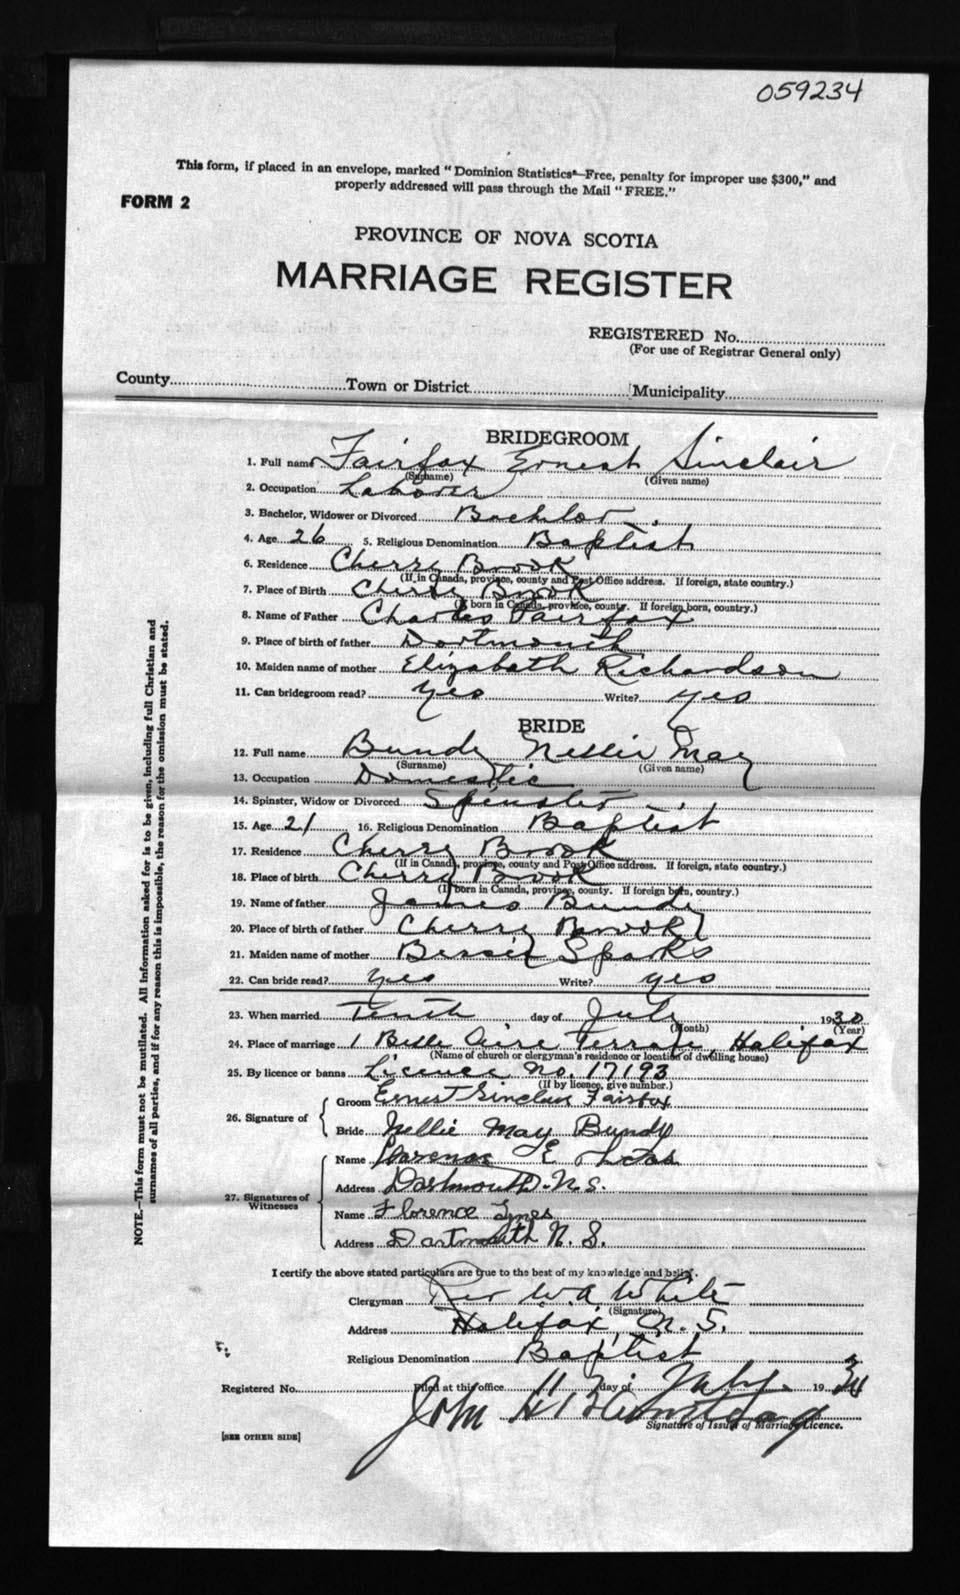 059234
This form, if placed in an envelope, marked "Dominion Statistics—Free, penalty for improper use $300," and
properly addressed will pass through the Mail "FREE."
FORM 2
PROVINCE OF NOVA SCOTIA
MARRIAGE REGISTER
REGISTERED No.
(For use of Registrar General only)
County Town or District Municipality
BRIDEGROOM
1. Full name Fairfax Ernest Sinclair
(Surname) (Given name)
2. Occupation Laborer
3. Bachelor, Widower or Divorced Bachelor
4. Age 26 5. Religious Denomination Baptist
6. Residence Cherry Brook
(If in Canada, province, county and Post Office address. If foreign, state country.)
7. Place of Birth Cherry Brook
(If born in Canada, province, county. If foreign born, country.)
8. Name of Father Charles Fairfax
9. Place of birth of father Dartmouth
10. Maiden name of mother Elizabeth Richardson
11. Can bridegroom read? yes Write? yes
BRIDE
12. Full name Bundy Nellie May
(Surname) (Given name)
13. Occupation Domestic
14. Spinster, Widow or Divorced Spinster
15. Age 21 16. Religious Denomination Baptist
17. Residence Cherry Brook
(If in Canada, province, county and Post Office address. If foreign, state country.)
18. Place of birth Cherry Brook
(If born in Canada, province, county. If foreign born, country.)
19. Name of father James Bundy
20. Place of birth of father Cherry Brook
21. Maiden name of mother Bessie Sparks
22. Can bride read? yes Write? yes
23. When married Tenth day of July 1930
(Month) (Year)
24. Place of marriage 1 Belle Aire Terrace, Halifax
(Name of church or clergyman's residence or location of dwelling house)
25. By licence or banns Licence No. 17193
(If by licence, give number.)
26. Signature of
Groom Ernest Sinclair Fairfax
Bride Nellie May Bundy
27. Signatures of Witnesses
Name Clarence E
Address Dartmouth. N.S.
Name Florence Tynes
Address Dartmouth N. S.
I certify the above stated particulars are true to the best of my knowledge and belief.
Clergyman Rev W.A White
(Signature)
Address Halifax, N. S.
Religious Denomination Baptist
Registered No. Filed at this office 11 day of July 19
John
Signature of Issuer of Marriage Licence.
[SEE OTHER SIDE]
NOTE.—This form must not be mutilated. All information asked for is to be given, including full Christian and
surnames of all parties, and if for any reason this is impossible, the reason for the omission must be stated.